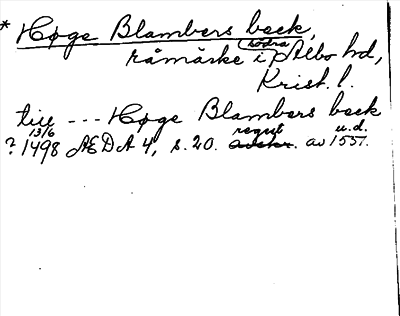 * Høge Blambers beck,
råmärke i södra Albo hd,
Krist. l.
till --- Høge Blambers beck
? 13/6 1498 ÆDA 4, s. 20. regist u.d. av 1557.